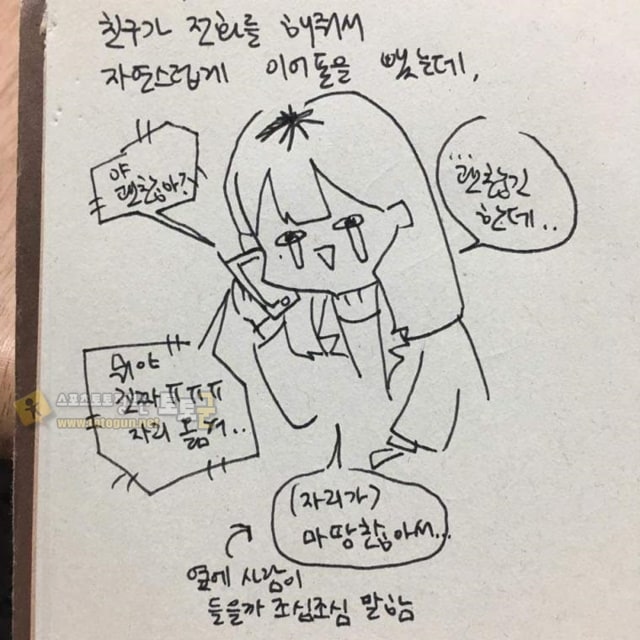 친구가 전화를 해줘서
자연스럽게 이어폰을 뺏는데,
야
괜찮아?
...괜찮긴
한데..
뭐야
진짜ㅠㅠㅠ
자리 옮겨..
토토군
(자리가)
마땅찮아서...
옆에 사람이
들을까 조심조심 말함